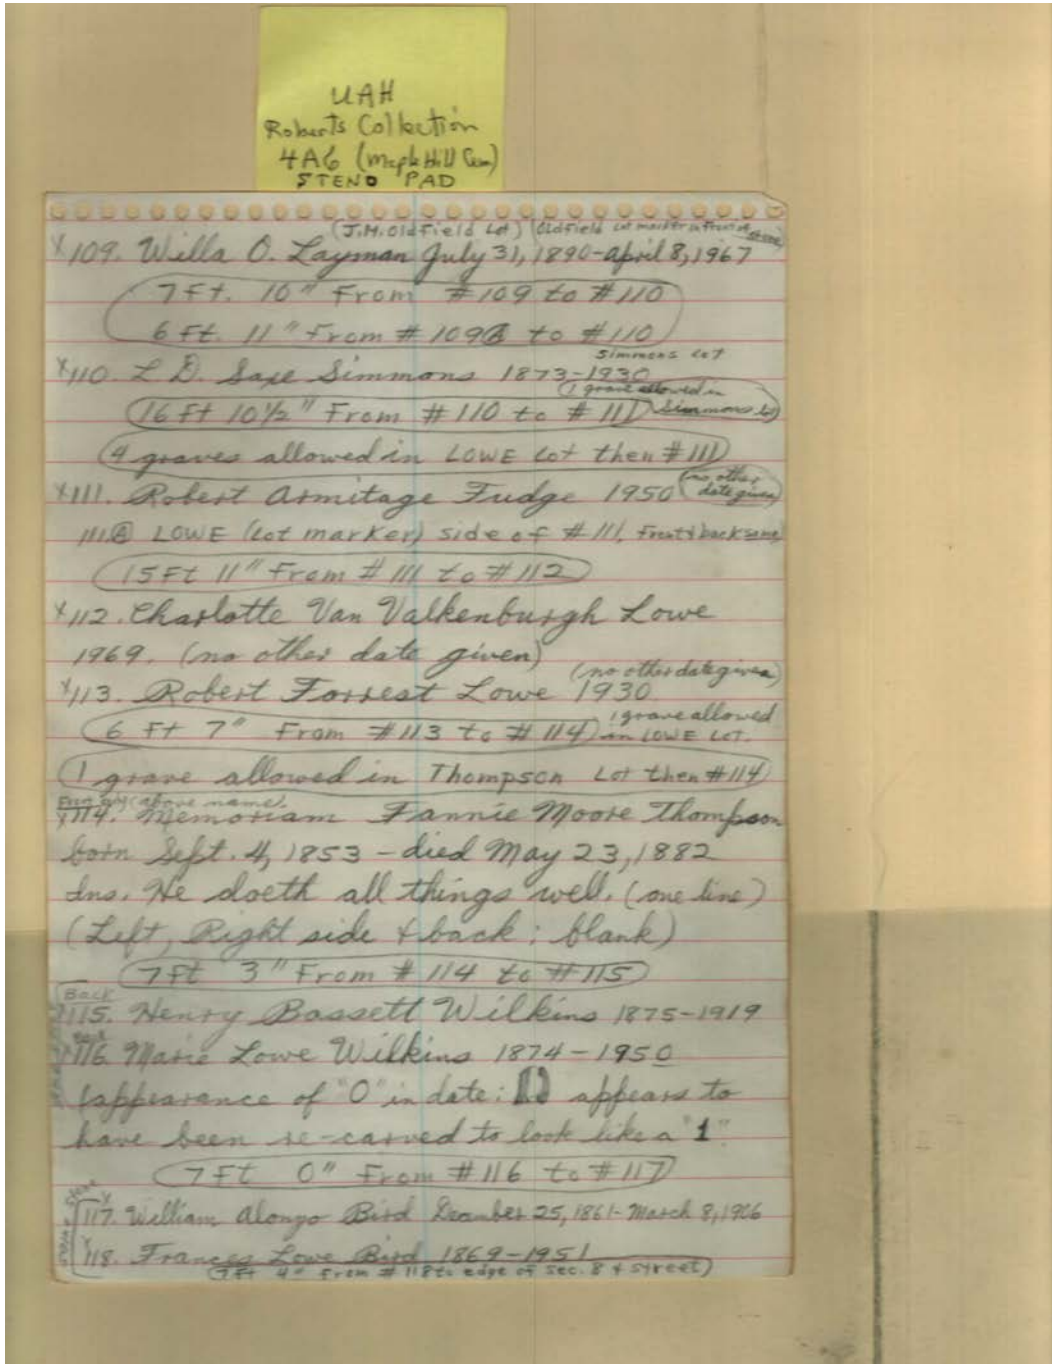 UAH
Roberts Collection
4A6 (Maple Hill Cem)
STENO PAD
(J.M. Oldfield Lot) (Oldfield Lot marker in front of stone)
x109. Willa O. Layman July 31, 1890-April 8, 1967
7 Ft. 10" From #109 to #110
6 Ft. 11" From #109A to #110
Simmons Lot
x110. L. D. Saxe Simmons 1873-1930
(1 grave allowed in Simmons Lot)
16 Ft 10 1/2" From #110 to #111
4 graves allowed in LOWE Lot then #111
x111. Robert Armitage Fudge 1950 (no other date given)
111.A LOWE (Lot marker) side of #111, Front & back same
15 Ft 11" From #111 to #112
x112. Charlotte Van Valkenburgh Lowe
1969. (no other date given)
(no other date given)
x113. Robert Forrest Lowe 1930
6 Ft 7" From #113 to #114 1 grave allowed in LOWE LOT.
1 grave allowed in Thompson Lot then #114
(above name)
x114. Memoriam Fannie Moore Thompson
born Sept. 4, 1853 - died May 23, 1882
Ins. He doeth all things well. (one line)
(Left, Right side & back; blank)
7 Ft 3" From #114 to #115
Back
x115. Henry Bassett Wilkins 1875-1919
x116. Marie Lowe Wilkins 1874-1950
(appearance of "0" in date: appears to
have been re-carved to look like a "1"
7 Ft 0" From #116 to #117
x117. William Alonzo Bird December 25, 1861-March 8, 1906
x118. Frances Lowe Bird 1869-1951
(7 Ft 4" From #118 to edge of Sec. 8 & street)